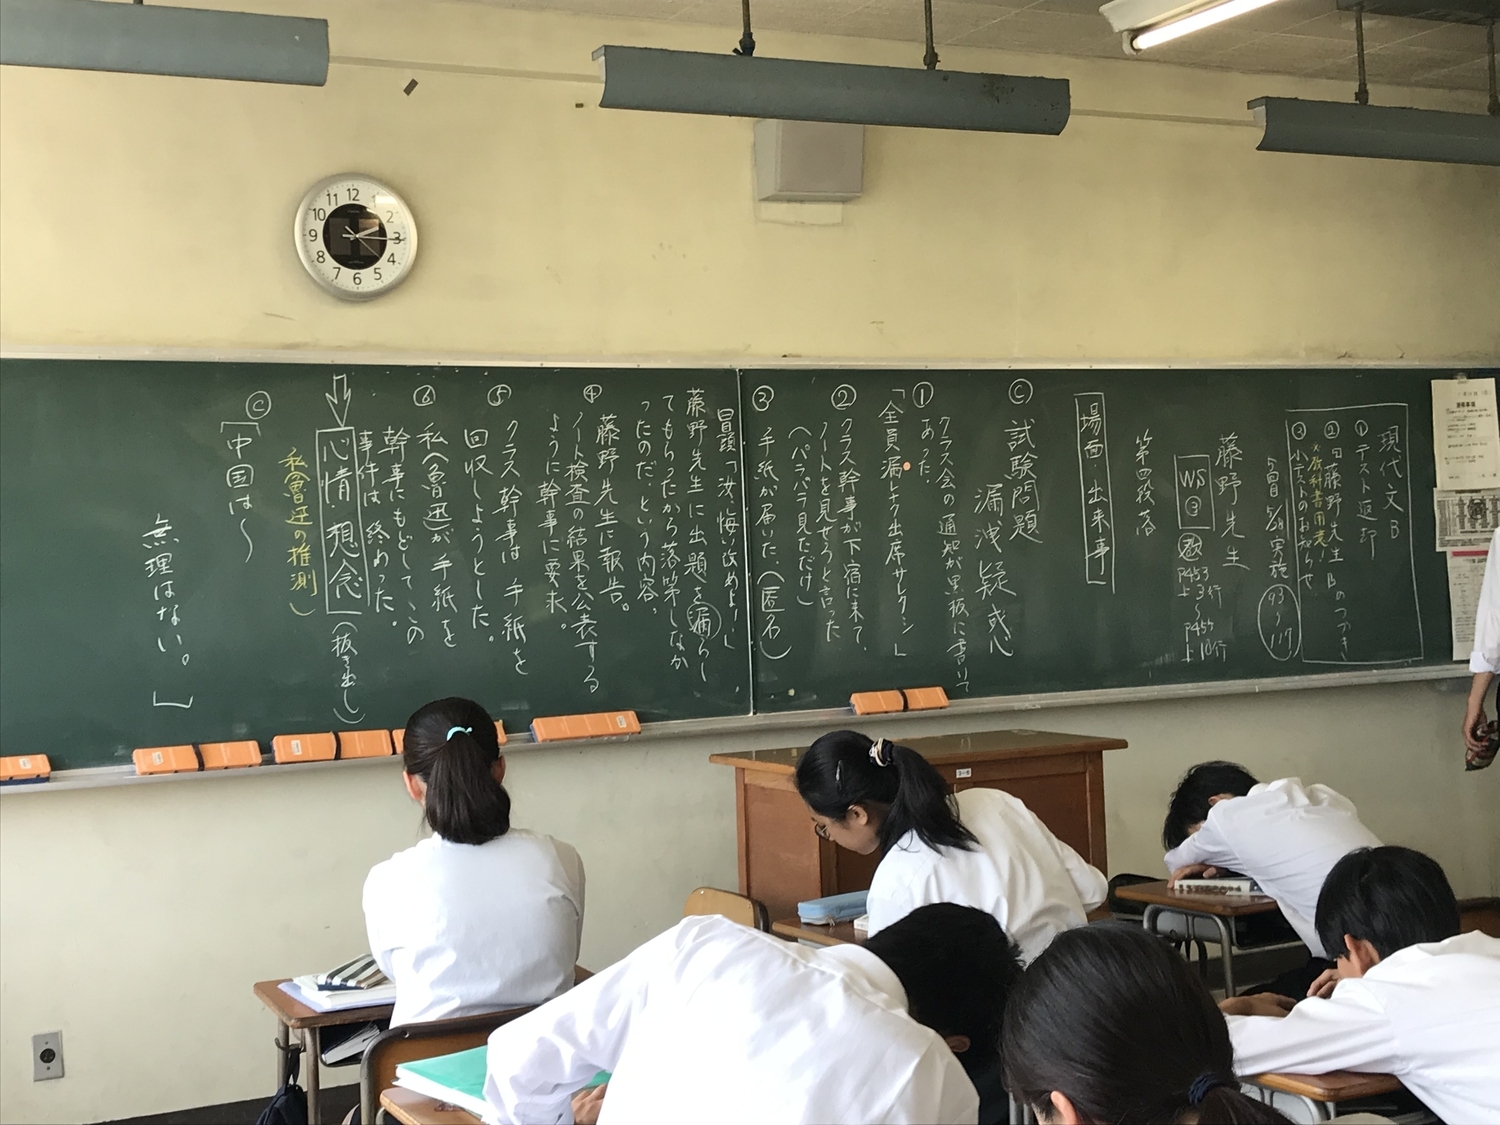 現代文B
①テスト返却
②藤野先生Bのつづき
※教科書用意
③小テストのお知らせ
5/28実施
93〜117
藤野先生
WS③
P453
上3行
〜
P457
上10行
第四段落
場面・出来事
ⓒ試験問題
漏洩疑惑
①クラス会の通知が黒板に書いて
あった
「全員漏レナク出席サレタシ」
②クラス幹事が下宿に来て、
ノートを見せろと言った
(パラパラ見ただけ)
③手紙が届いた。(匿名)
冒頭「汝、悔い改めよ!」
藤野先生に出題を漏らし
てもらったから落第しなか
ったのだ、という内容。
④藤野先生に報告。
ノート検査の結果を公表する
ように幹事に要求。
⑤クラス幹事は手紙を
回収しようとした。
⑥私(魯迅)が手紙を
幹事にもどしてこの
事件は終わった。
心情・想念(抜き出し)
私(魯迅の推測)
ⓒ「中国は〜
無理はない。」
12
1
2
3
4
5
6
7
8
9
10
11